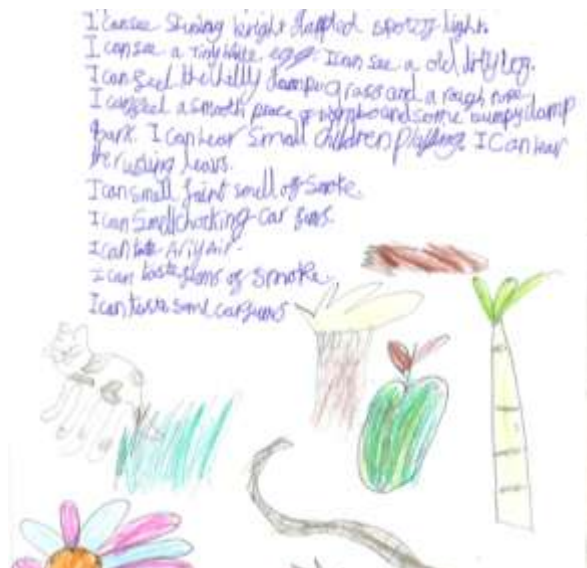 I can see Shining bright dappled spots of light.
I can see a tiny white egg. I can see a old dirty log.
I can feel the hilly damp grass and a rough rope
I can feel a smooth peace of and some bumpy damp
bark. I can hear Small children playing. I Can hear
the rusling leavs.
I can smell faint smell of Smoke.
I can Smell chocking car fums.
I can taste Air.
I can taste fums of smoke.
I can taste some car fums